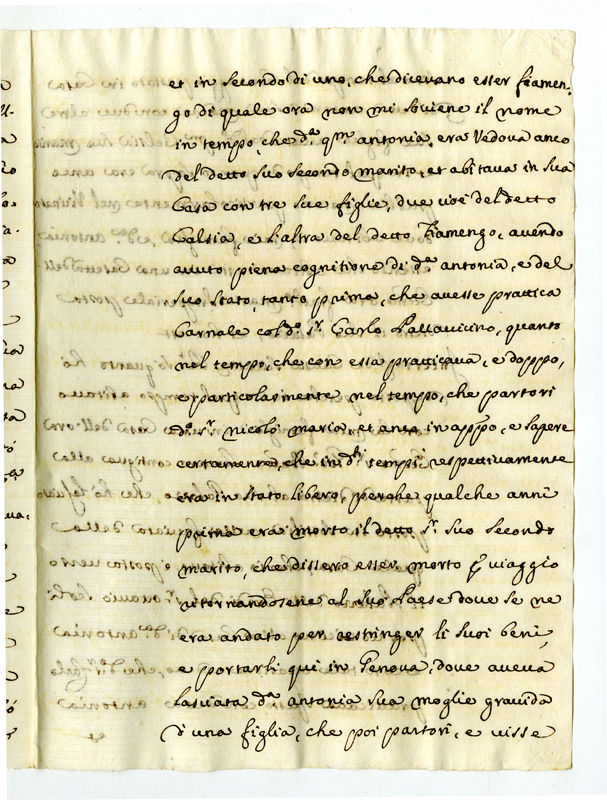 et in secondo di uno, che dicevano esser fiamen:
go di quale ora non mi soviene il nome
in tempo, che d.ª qm antonia, era Vedova anco
del detto suo secondo marito, et abitava in sua
Casa con tre sue figlie, due cioè del detto
Calsia, e l'altra del detto fiamengo, avendo
avuto piena cognitione di d.ª antonia, e del
suo stato, tanto prima, che avesse prattica
Carnale col d.º s.r Carlo Pallavicino, quanto
nel tempo, che con essa pratticava, e doppo,
e particolarmente nel tempo, che partorì
d.º s.r nicolò maria, et anco in appso, e sapere
certamente, che in d.i tempi respettivamente
era in stato libero, perche qualche anni
prima era morto il detto s.r suo secondo
marito, che dissero esser morto p viaggio
ritornandosene al suo Paese dove se ne
era andato per estringer li suoi beni,
e portarli qui in Genova, dove aveva
lasciata d.ª antonia sua moglie gravida
d'una figlia, che poi partorì, e visse